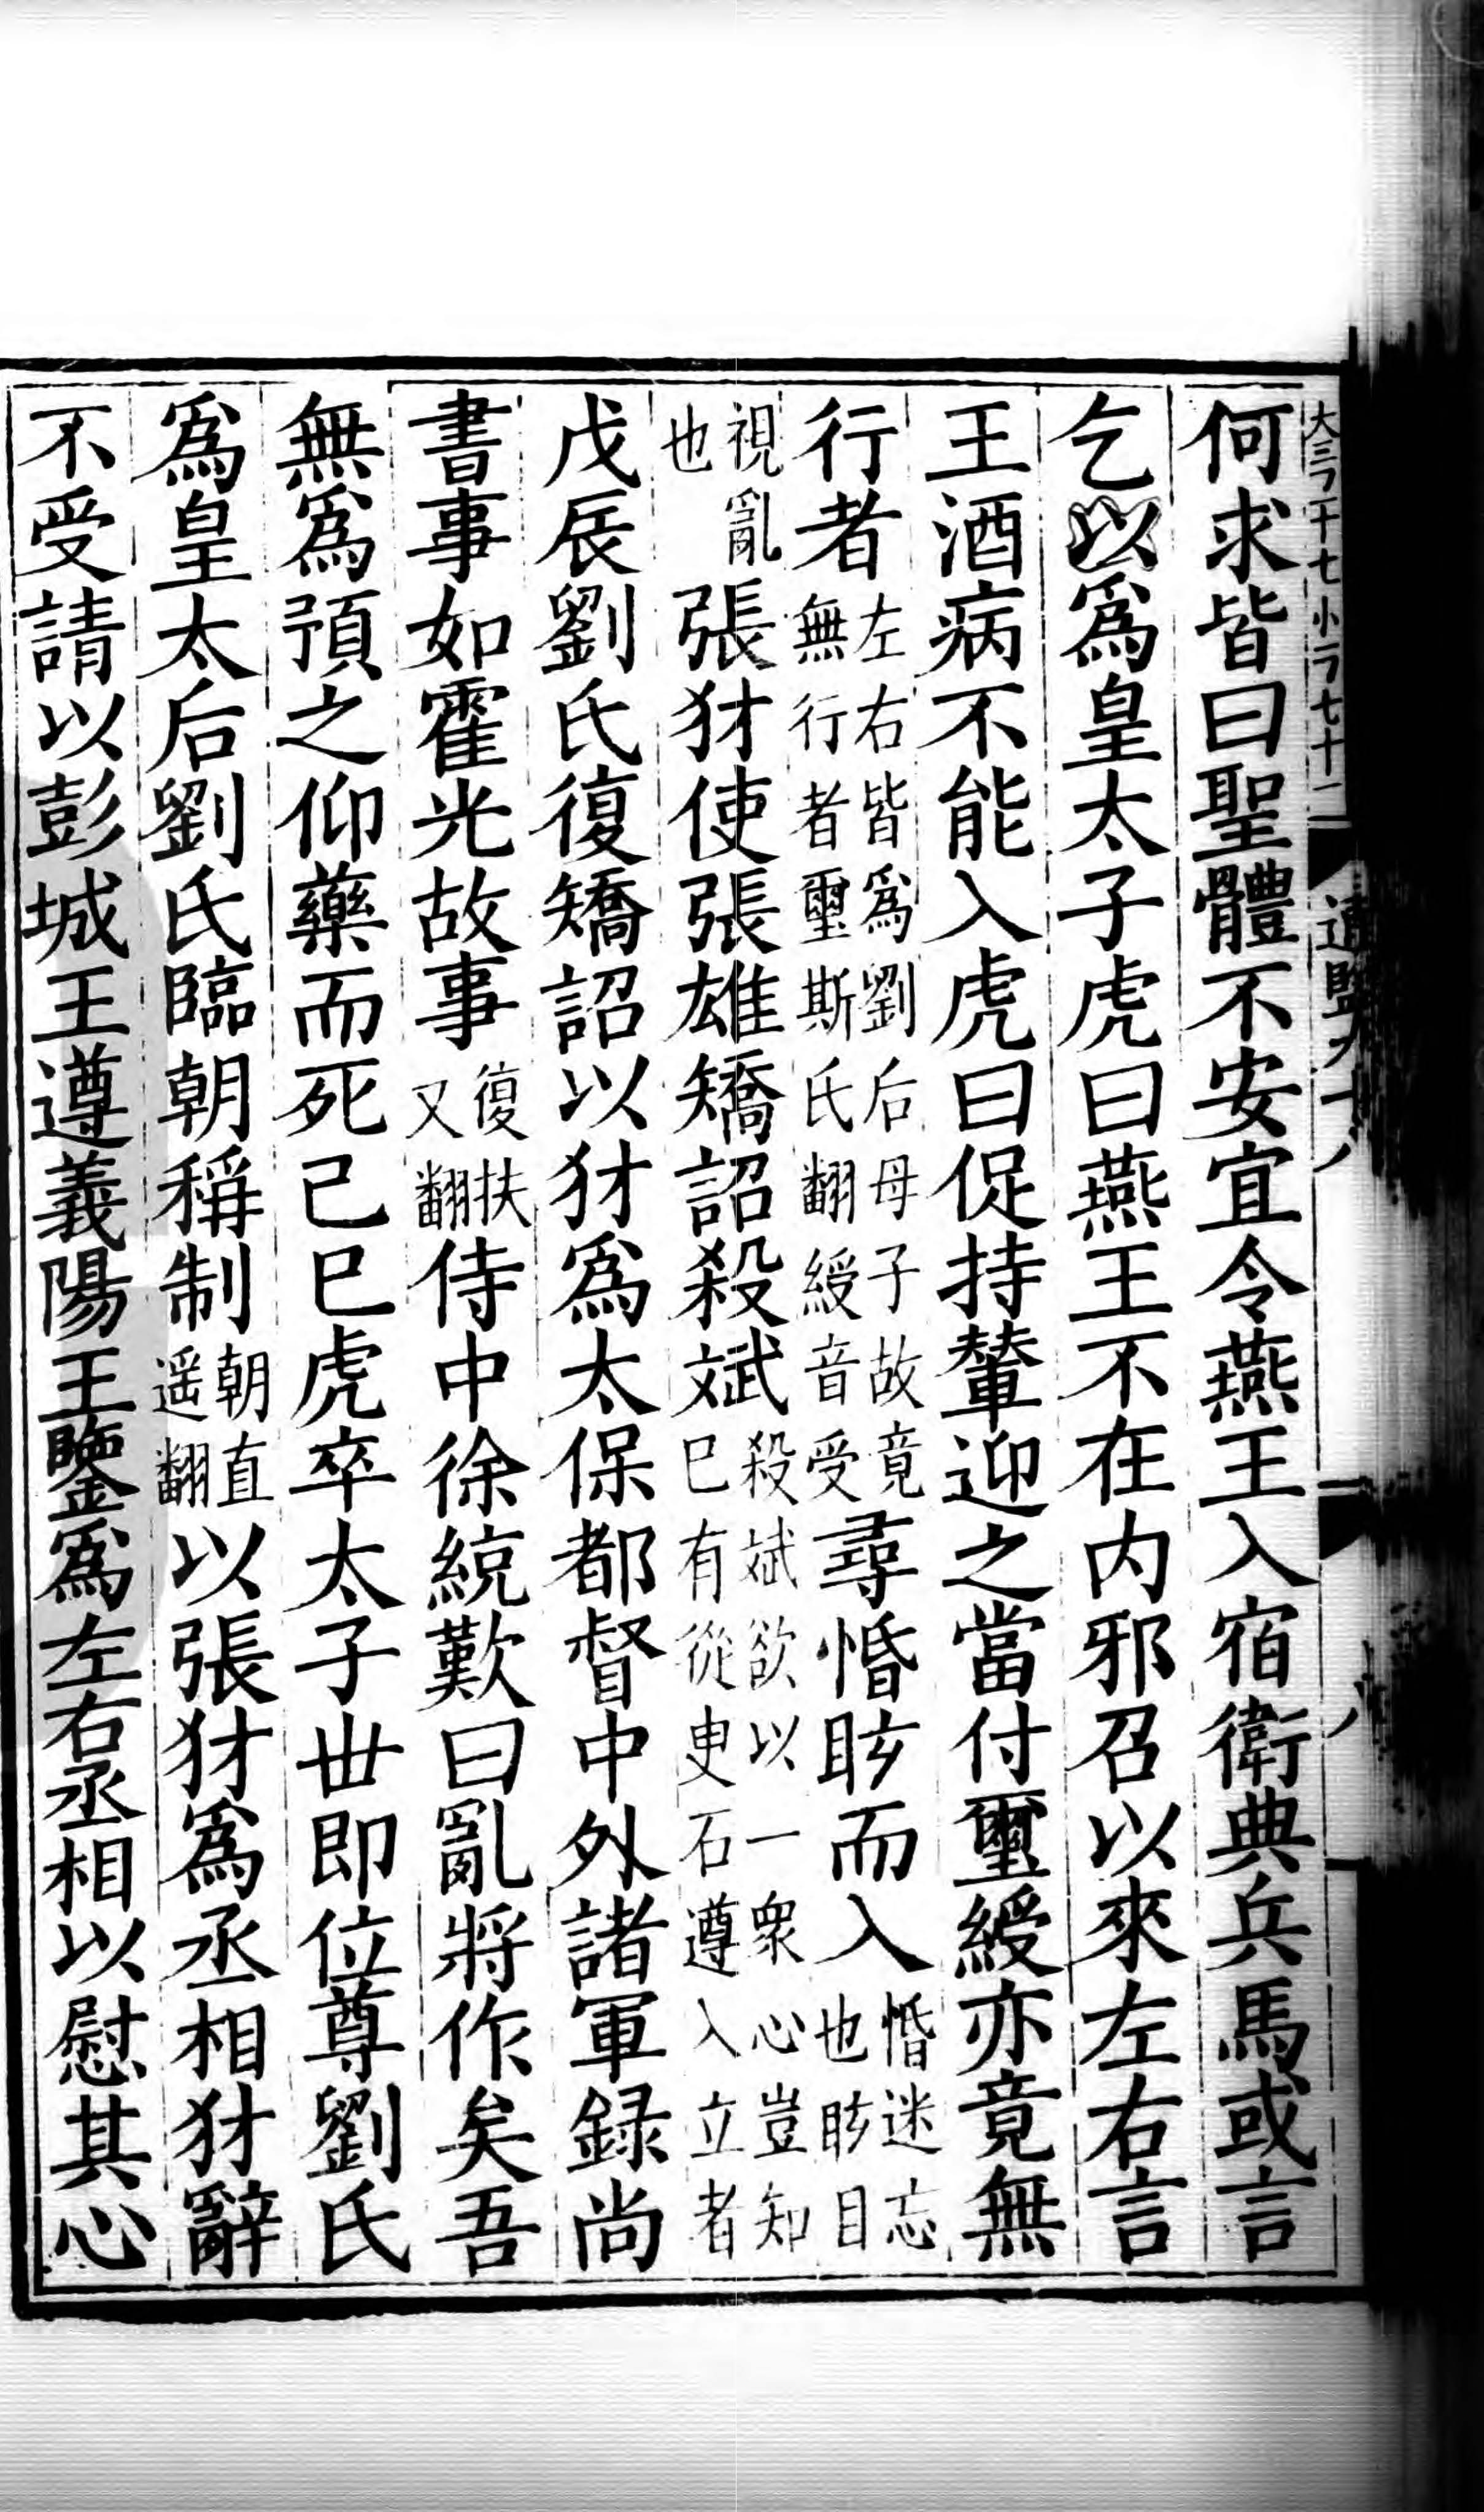 大三フ干七小一フ七十二
通鑑九十八
八
何求皆曰聖體不安宜令燕王入宿衛典兵馬或言
乞以爲皇太子虎曰燕王不在内邪召以來左右言
王酒病不能入虎曰促持輦迎之當付璽綬亦竟無
行者左右皆爲劉后母子故竟無行者璽斯氏翻綬音受尋惛眩而入惛迷忘也眩目
視亂也張犲使張雄矯詔殺斌殺斌欲以一衆心豈知巳有從㕜石遵入立者
戊辰劉氏復矯詔以犲爲太保都督中外諸軍録尚
書事如霍光故事復扶又翻侍中徐統歎曰亂將作矣吾
無爲預之仰藥而死己巳虎卒太子世即位尊劉氏
爲皇太后劉氏臨朝稱制朝直遥翻以張犲爲丞相犲辭
不受請以彭城王遵義陽王鑒爲左右丞相以慰其心